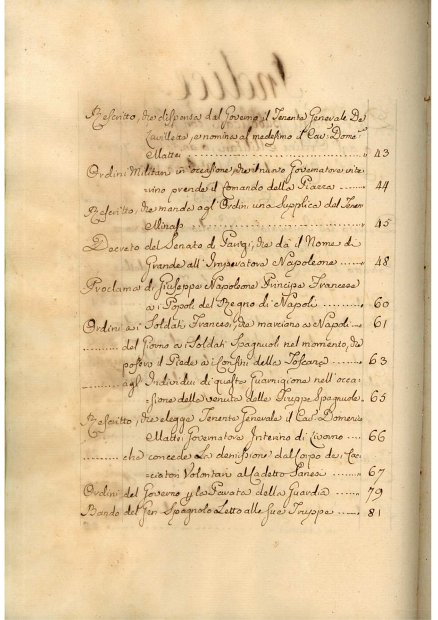 Indici
Rescritto, che dispensa dal Governo il Tenente Generale De
Lavilletta, e nomina al medesimo il Cav. Dome:
Mattei ........ 43
Ordini Militari in occasione, che il nuovo Governatore inte
rino prende il Comando della Piazza ........ 44
Rescritto, che manda agl'Ordini una Supplica del Tenen
........ 45
Decreto del Senato di Parigi, che dà il Nome di
Grande all'Imperatore Napoleone ........ 48
Proclama di Giuseppe Napoleone Principe Francese
a i Popoli del Regno di Napoli ........ 60
Ordine a i Soldati Francesi, che marciono a Napoli .. 61
........ del Giorno a i Soldati Spagnuoli nel momento, che
posero il Piede a i Confini della Toscana ........ 63
........ agl'Individui di questa Guarnigione nell'occa
=sione della venuta delle Truppe Spagnuole. 65
Rescritto, che elegge Tenente Generale il Cav. Domenico
Mattei Governatore Interino di Livorno .... 66
........ che concede la demissione dal Corpo de i Cac
=ciatori Volontari al Cadetto Sanea ........ 67
Ordini del Governo p la Parata della Guardia ........ 79
Bando del Gen. Spagnolo Letto alle sue Truppe ........ 81